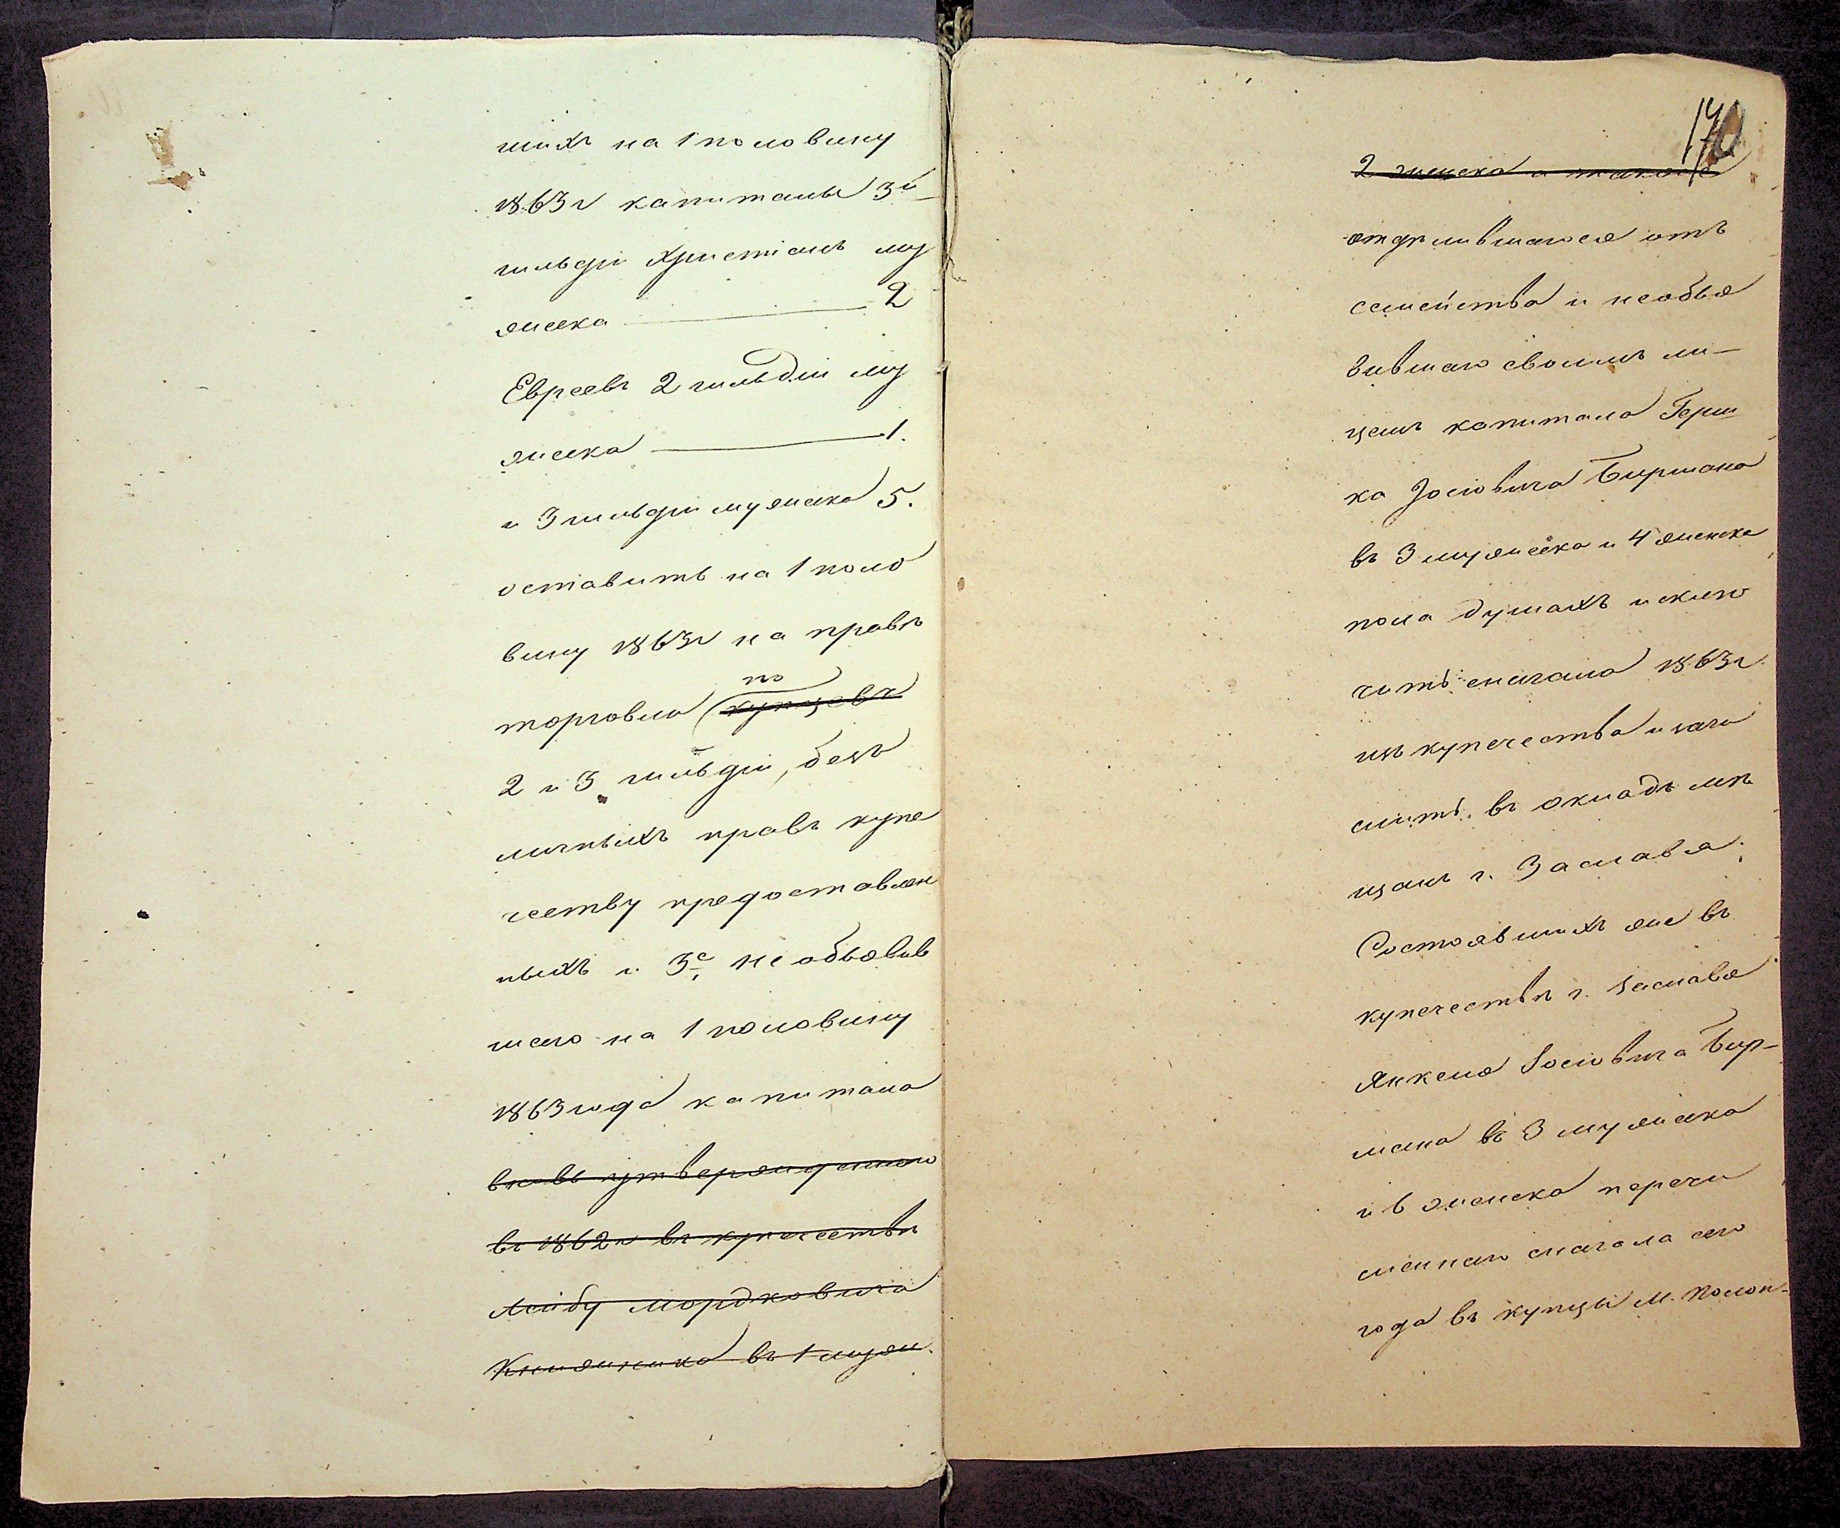 шихъ на 1 половину
1863 г капиталы 3й
гильдіи Христіанъ му
жеска — 2
Евреевъ 2 гильдіи му
жеска — 1.
и 3 гильдіи мужеска 5.
оставить на 1 поло
вину 1863 г на правѣ
по
торговли купцовъ
2 и 3 гильдіи, безъ
личныхъ правъ купе
честву предоставлен
ныхъ и 3е, необъявив
шаго на 1 половину
1863 года капитала
вновь утвержденнаго
въ 1862 г въ купечествѣ
Лейбу Мордковича
въ 1 муж.
170
2 женска а также
отдѣлившагося отъ
семейства и необъя
вившаго своимъ ли-
цемъ капитала Герш
ка Іосіовича Бирмана
въ 3 мужеска и 4 женска
пола душахъ исклю
чить сначала 1863 г.
изъ купечества и зачи
слить въ окладъ мѣ
щанъ г. Заславля.
Состоявшихъ же въ
купечествѣ г. Заславля
Янкеля Іосіовича Бир-
мана въ 3 мужеска
и 6 женска перечи
сленнаго сначала сего
года въ купцы м. Полон-